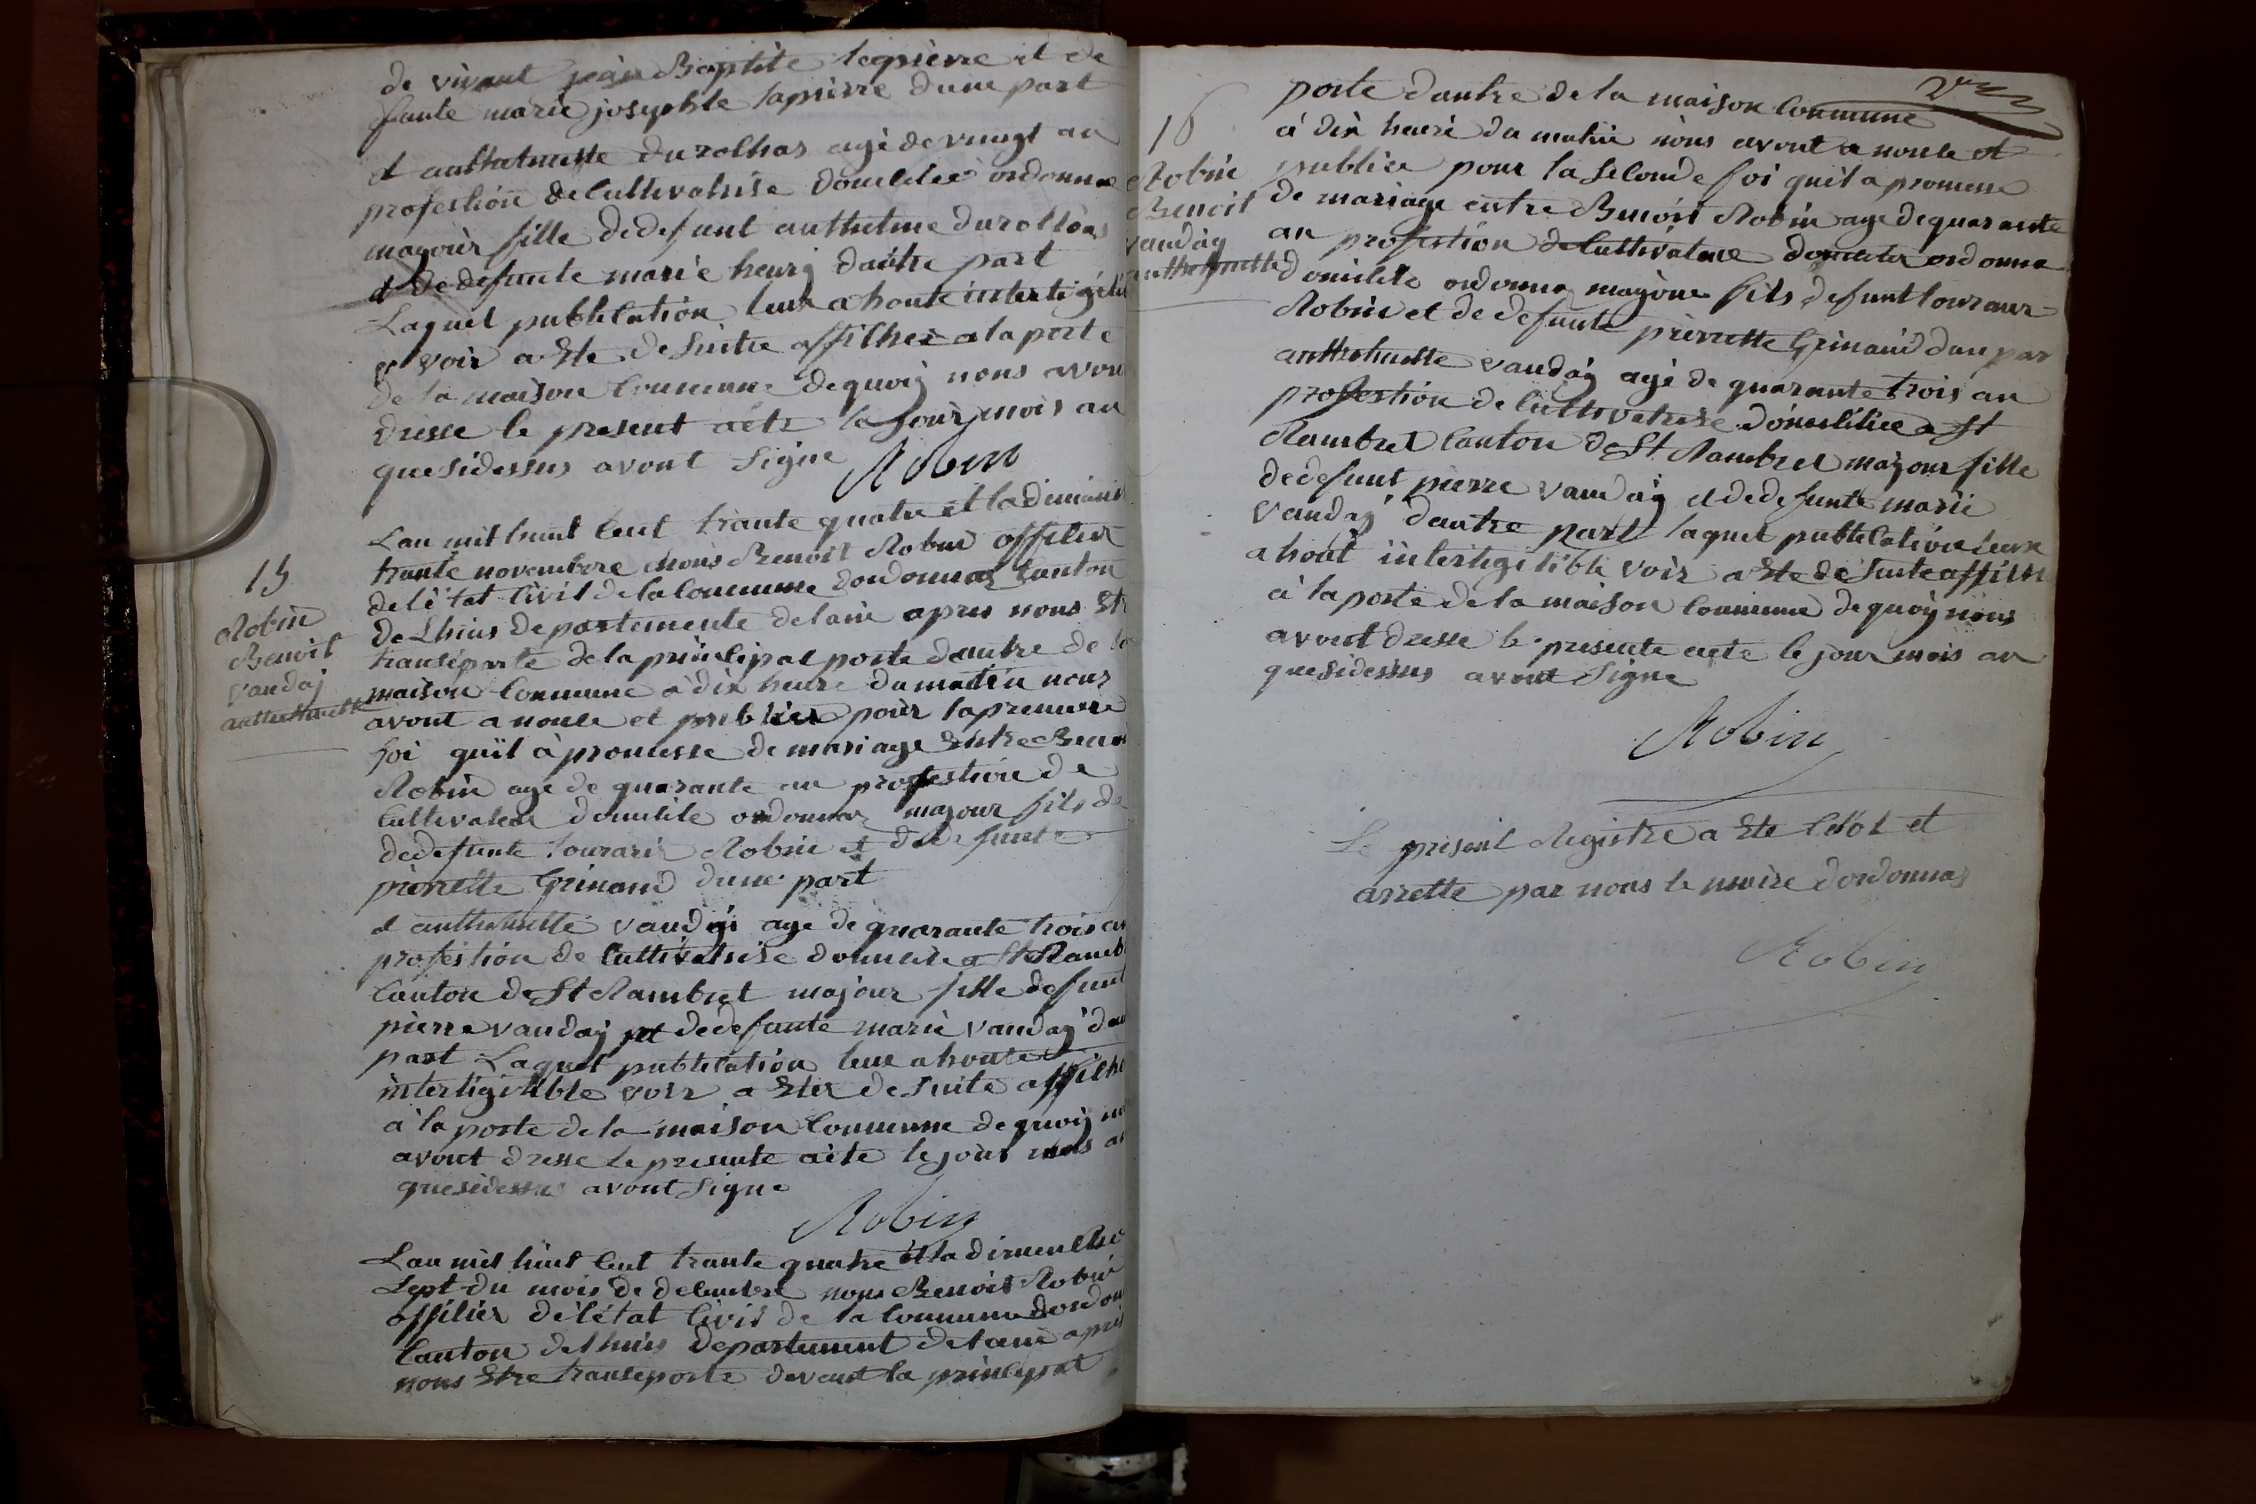 de vivant jean Baptite lapierre et de
fante marie josephte lapierre dune part
et anthelmette durolhas agé de vingt an
profestion de Cultivatrise domilié ordonna
mayour fille dedefunt anthelme durollas
et de defunte marie henrÿ dautre part
Laquel publication leur a haute intertigible
voir a Ete de suitte affiche a la porte
de la maison Commune de quoij nous avon
dresse le present acte le jour mois an
que sidessus avont Signe
Robin
15
Robin
Benoit
vandaj
anthelmette
Lan mit huit Cent trante quatre et la dimanche
trante novembre nous Benoit Robin offilier
de létat Civil de la Commune dordonnas Canton
de Lhuis departemente delain apres nous Etr
transeporte de la prinlipal porte dantre de la
maison Commune a dix heure du matin nous
avont a nonle et publier pour la premiere
foi quil à promesse de mariage Entre Benoi
Robin age de quarante an profestion de
Cultivateur domilile ordonnas mayour fils de
dedefunte lourans Robin et dedefunte
pierrette Grinand dune part
et anthelmette vandaÿ age de quarante trois an
profestion de Cultivatrise domilie a St Ramb
Canton de St Rambret majour fille defunt
pierre vandaij et dedefunte marie vandaÿ dau
part Laquel publication leue a haute
intertigitible voir a Eter de suite affiche
à la porte de la maison Commune de quoij no
avont dresse le presente acte le jour mois an
quesidessus avont Signe
Robin
Lan mil huit Cent trante quatre et la dimenche
Sept du mois de delembre nous Benoit Robin
offilier de létat Civil de la Commune dordon
Canton delhuis departement delain apres
nous Etre transeporte devant la prinlipal
16
Robin
Benoit
vandaÿ
anthelmette
porte dantre de la maison Commune
à dix heure du matin nous avont a nonle et
publier pour la Selonde foi quil a promesse
de mariage entre Benoit Robin age de quarante
an profestion de Cultivateure domilier ordonna
domilile ordonnas mayour fils defunt lourans
Robin et de defunte pierrette Grinand dun par
anthelmette vandaÿ agé de quarante trois an
profestion de Cultivatrise domililiee a St
Rambret Canton de St Rambret mayour fille
dedefunt pierre vandaij et dedefunte marie
vandaÿ dautre part laquel publication leure
a hout intertigitible voir a Ete de suite affiche
à la porte de la maison Commune de quoij nous
avont dresse le presente acte le jour mois an
quesidessus avont Signe
Robin
Le present Registre a Ete Clot et
arrette par nous le maire dordonnas
Robin